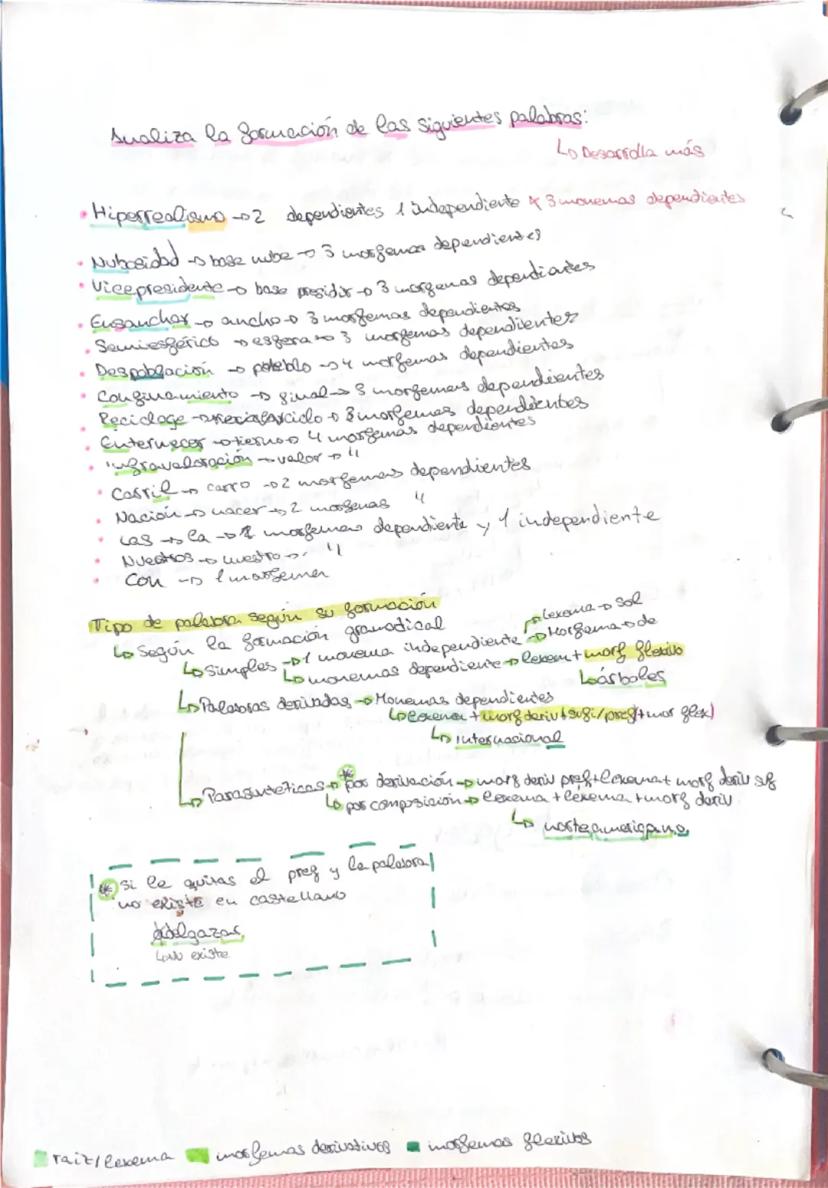 Analiza la formación de las siguientes palabras:
↳ Desarrolla más
• Hiperrealismo → 2 dependientes 1 independiente 3 monemas dependientes
• Nubosidad → base nube → 3 morfemas dependientes
• Vicepresidente → base presidir → 3 morfemas dependiantes
• Ensanchar → ancho → 3 morfemas dependientes
Semiesférico → esfera → 3 morfemas dependientes
• Despoblación → pueblo → 4 morfemas dependientes
• Confinamiento → final → 3 morfemas dependientes
Reciclage → ciclo → 3 morfemas dependientes
• Enternecer → tierno → 4 morfemas dependientes
• infravaloración → valor → "
• Carril → carro → 2 morfemas dependientes
• Nación → nacer → 2 morfemas "
• Las → la → 1 morfema dependiente y 1 independiente
• Nuestros → nuestro → "
• Con → 1 morfema
Tipo de palabra según su formación
↳ Según la formación gramatical
↳ Simples → 1 monema independiente → lexema → sol
→ Morfema → de
↳ monemas dependiente → lexem + morf flexivo
↳ árboles
↳ Palabras derivadas → Monemas dependientes
↳ lexema + morf deriv (sufi/pref) + mor flex)
↳ internacional
↳ Parasintéticas → * por derivación → morf deriv pref + lexema + morf deriv suf
↳ por composición → lexema + lexema + morf deriv
↳ norteamericano
* si le quitas el pref y la palabra
no existe en castellano
adelgazar
↳ No existe
raiz/lexema morfemas derivativos morfemas flexivos